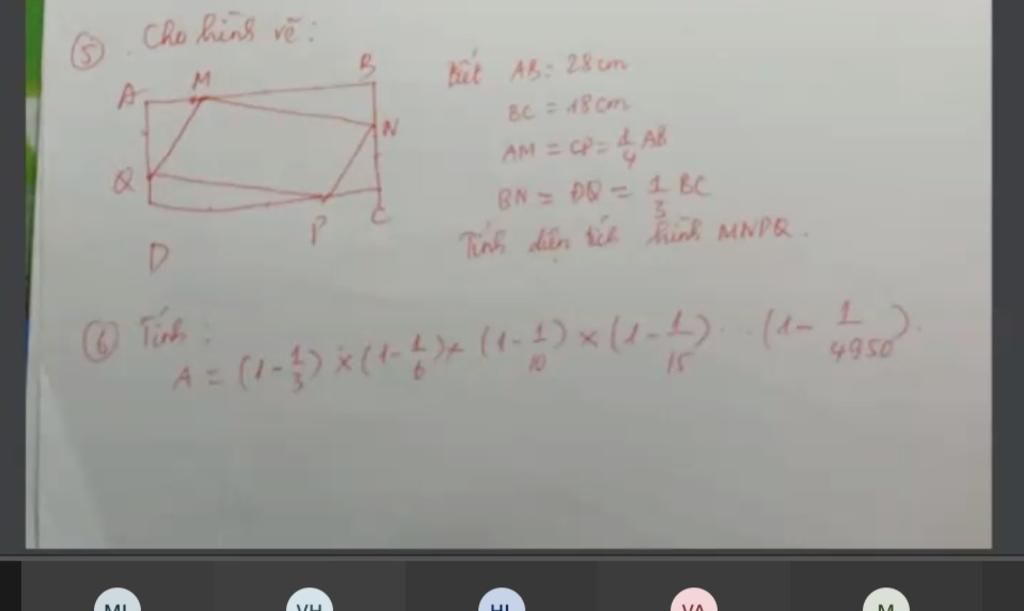 ⑤. Cho hình vẽ:
A M B
N
Q
P C
D
Biết AB = 28cm
BC = 18cm
AM = CP = 1/4 AB
BN = DQ = 1/3 BC
Tính diện tích hình MNPQ.
⑥ Tính:
A = (1 - 1/3) × (1 - 1/6) × (1 - 1/10) × (1 - 1/15) ... (1 - 1/4950).
MI VH HL VA M